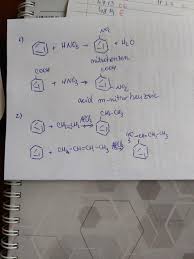 1)
+ HNO3 → NO2 + H2O
nitrobenzen
COOH COOH
+ HNO3 → NO2
acid m-nitrobenzoic
2)
+ CH2=CH2 AlCl3 → CH2-CH3
+ CH2=CH-CH3 AlCl3 → H3C-CH-CH3